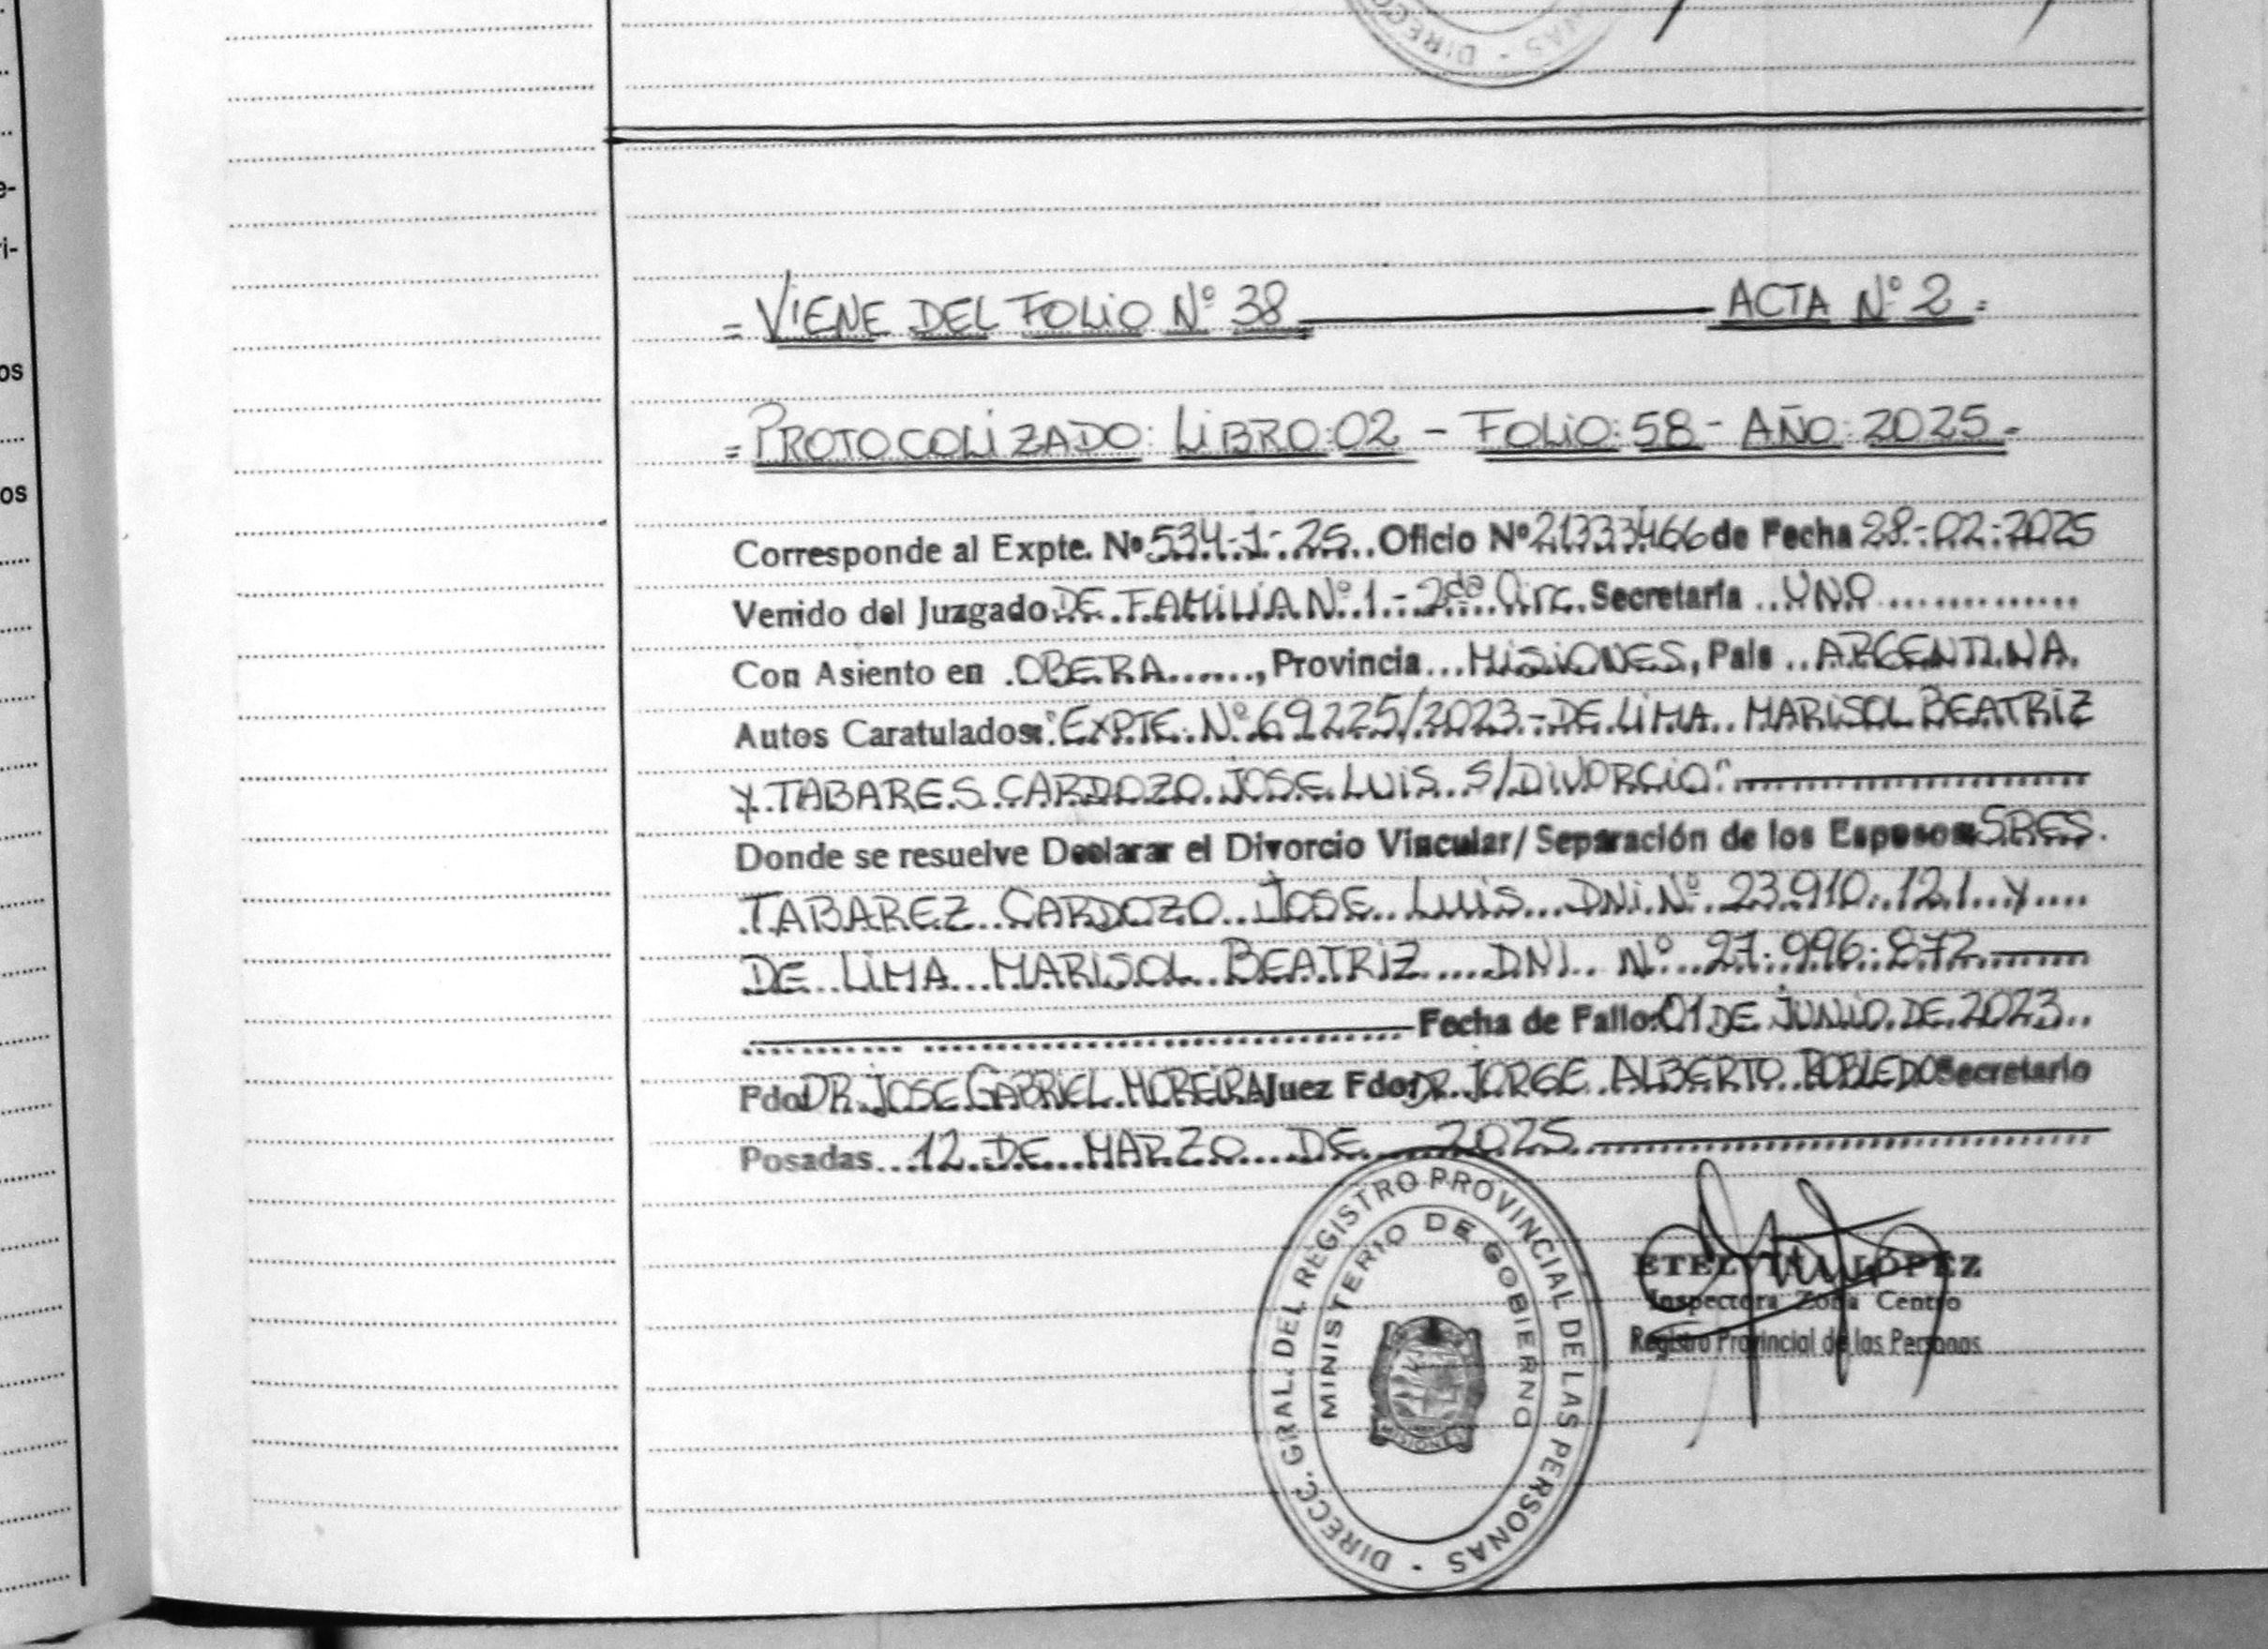 e-
ri-
os
os
DIRECC
NAS -
= VIENE DEL FOLIO Nº 38 ACTA Nº 2 =
= PROTOCOLIZADO: LIBRO: 02 - FOLIO: 58 - AÑO: 2025 =
Corresponde al Expte. Nº 534-1-25 Oficio Nº 21333466 de Fecha 28-02-2025
Venido del Juzgado DE FAMILIA Nº 1 - 2da Circ. Secretaría UNO
Con Asiento en OBERA, Provincia MISIONES, País ARGENTINA.
Autos Caratulados: "EXPTE. Nº 69225/2023 - DE LIMA MARISOL BEATRIZ
Y TABARES CARDOZO JOSE LUIS S/DIVORCIO"
Donde se resuelve Declarar el Divorcio Vincular/Separación de los Esposos SRES.
TABAREZ CARDOZO JOSE LUIS DNI Nº 23.910.121 y
DE LIMA MARISOL BEATRIZ DNI. Nº 27.996.872
Fecha de Fallo: 01 DE JUNIO DE 2023
Fdo: DR. JOSE GABRIEL MOREIRA Juez Fdo: DR. JORGE ALBERTO ROBLEDO Secretario
Posadas 12 DE MARZO DE 2025
DIRECC. GRAL. DEL REGISTRO PROVINCIAL DE LAS PERSONAS -
MINISTERIO DE GOBIERNO
MISIONES
ETELVINA LÓPEZ
Inspectora Zona Centro
Registro Provincial de las Personas